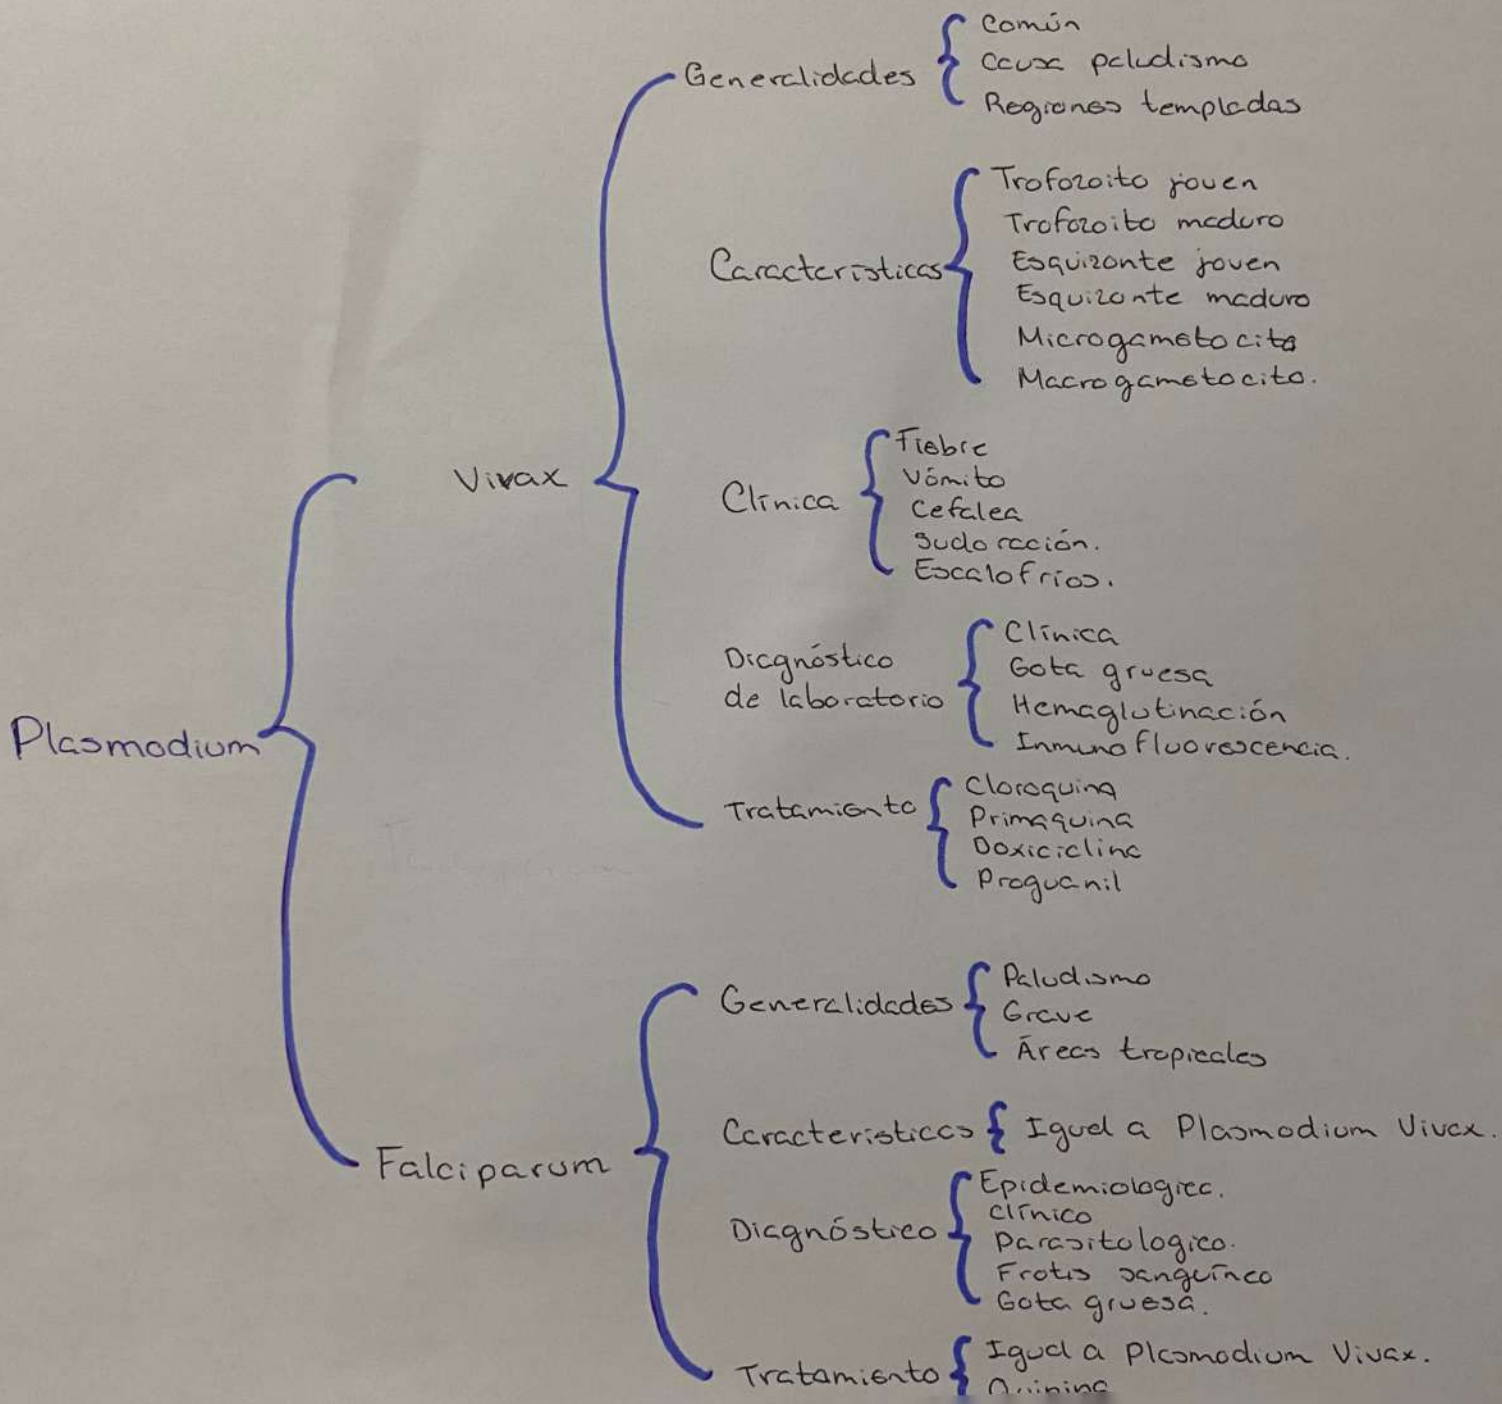 Plasmodium
Vivax
Generalidades
Común
Causa paludismo
Regiones templadas
Características
Trofozoito joven
Trofozoito maduro
Esquizonte joven
Esquizonte maduro
Microgametocito
Macrogametocito.
Clínica
Fiebre
Vómito
Cefalea
Sudoración.
Escalofríos.
Diagnóstico
de laboratorio
Clínica
Gota gruesa
Hemaglutinación
Inmunofluorescencia.
Tratamiento
Cloroquina
Primaquina
Doxiciclina
Proguanil
Falciparum
Generalidades
Paludismo
Grave
Áreas tropicales
Características
Igual a Plasmodium Vivax.
Diagnóstico
Epidemiologica.
Clínico
Parasitologico.
Frotis sanguíneo
Gota gruesa.
Tratamiento
Igual a Plasmodium Vivax.
Quinina